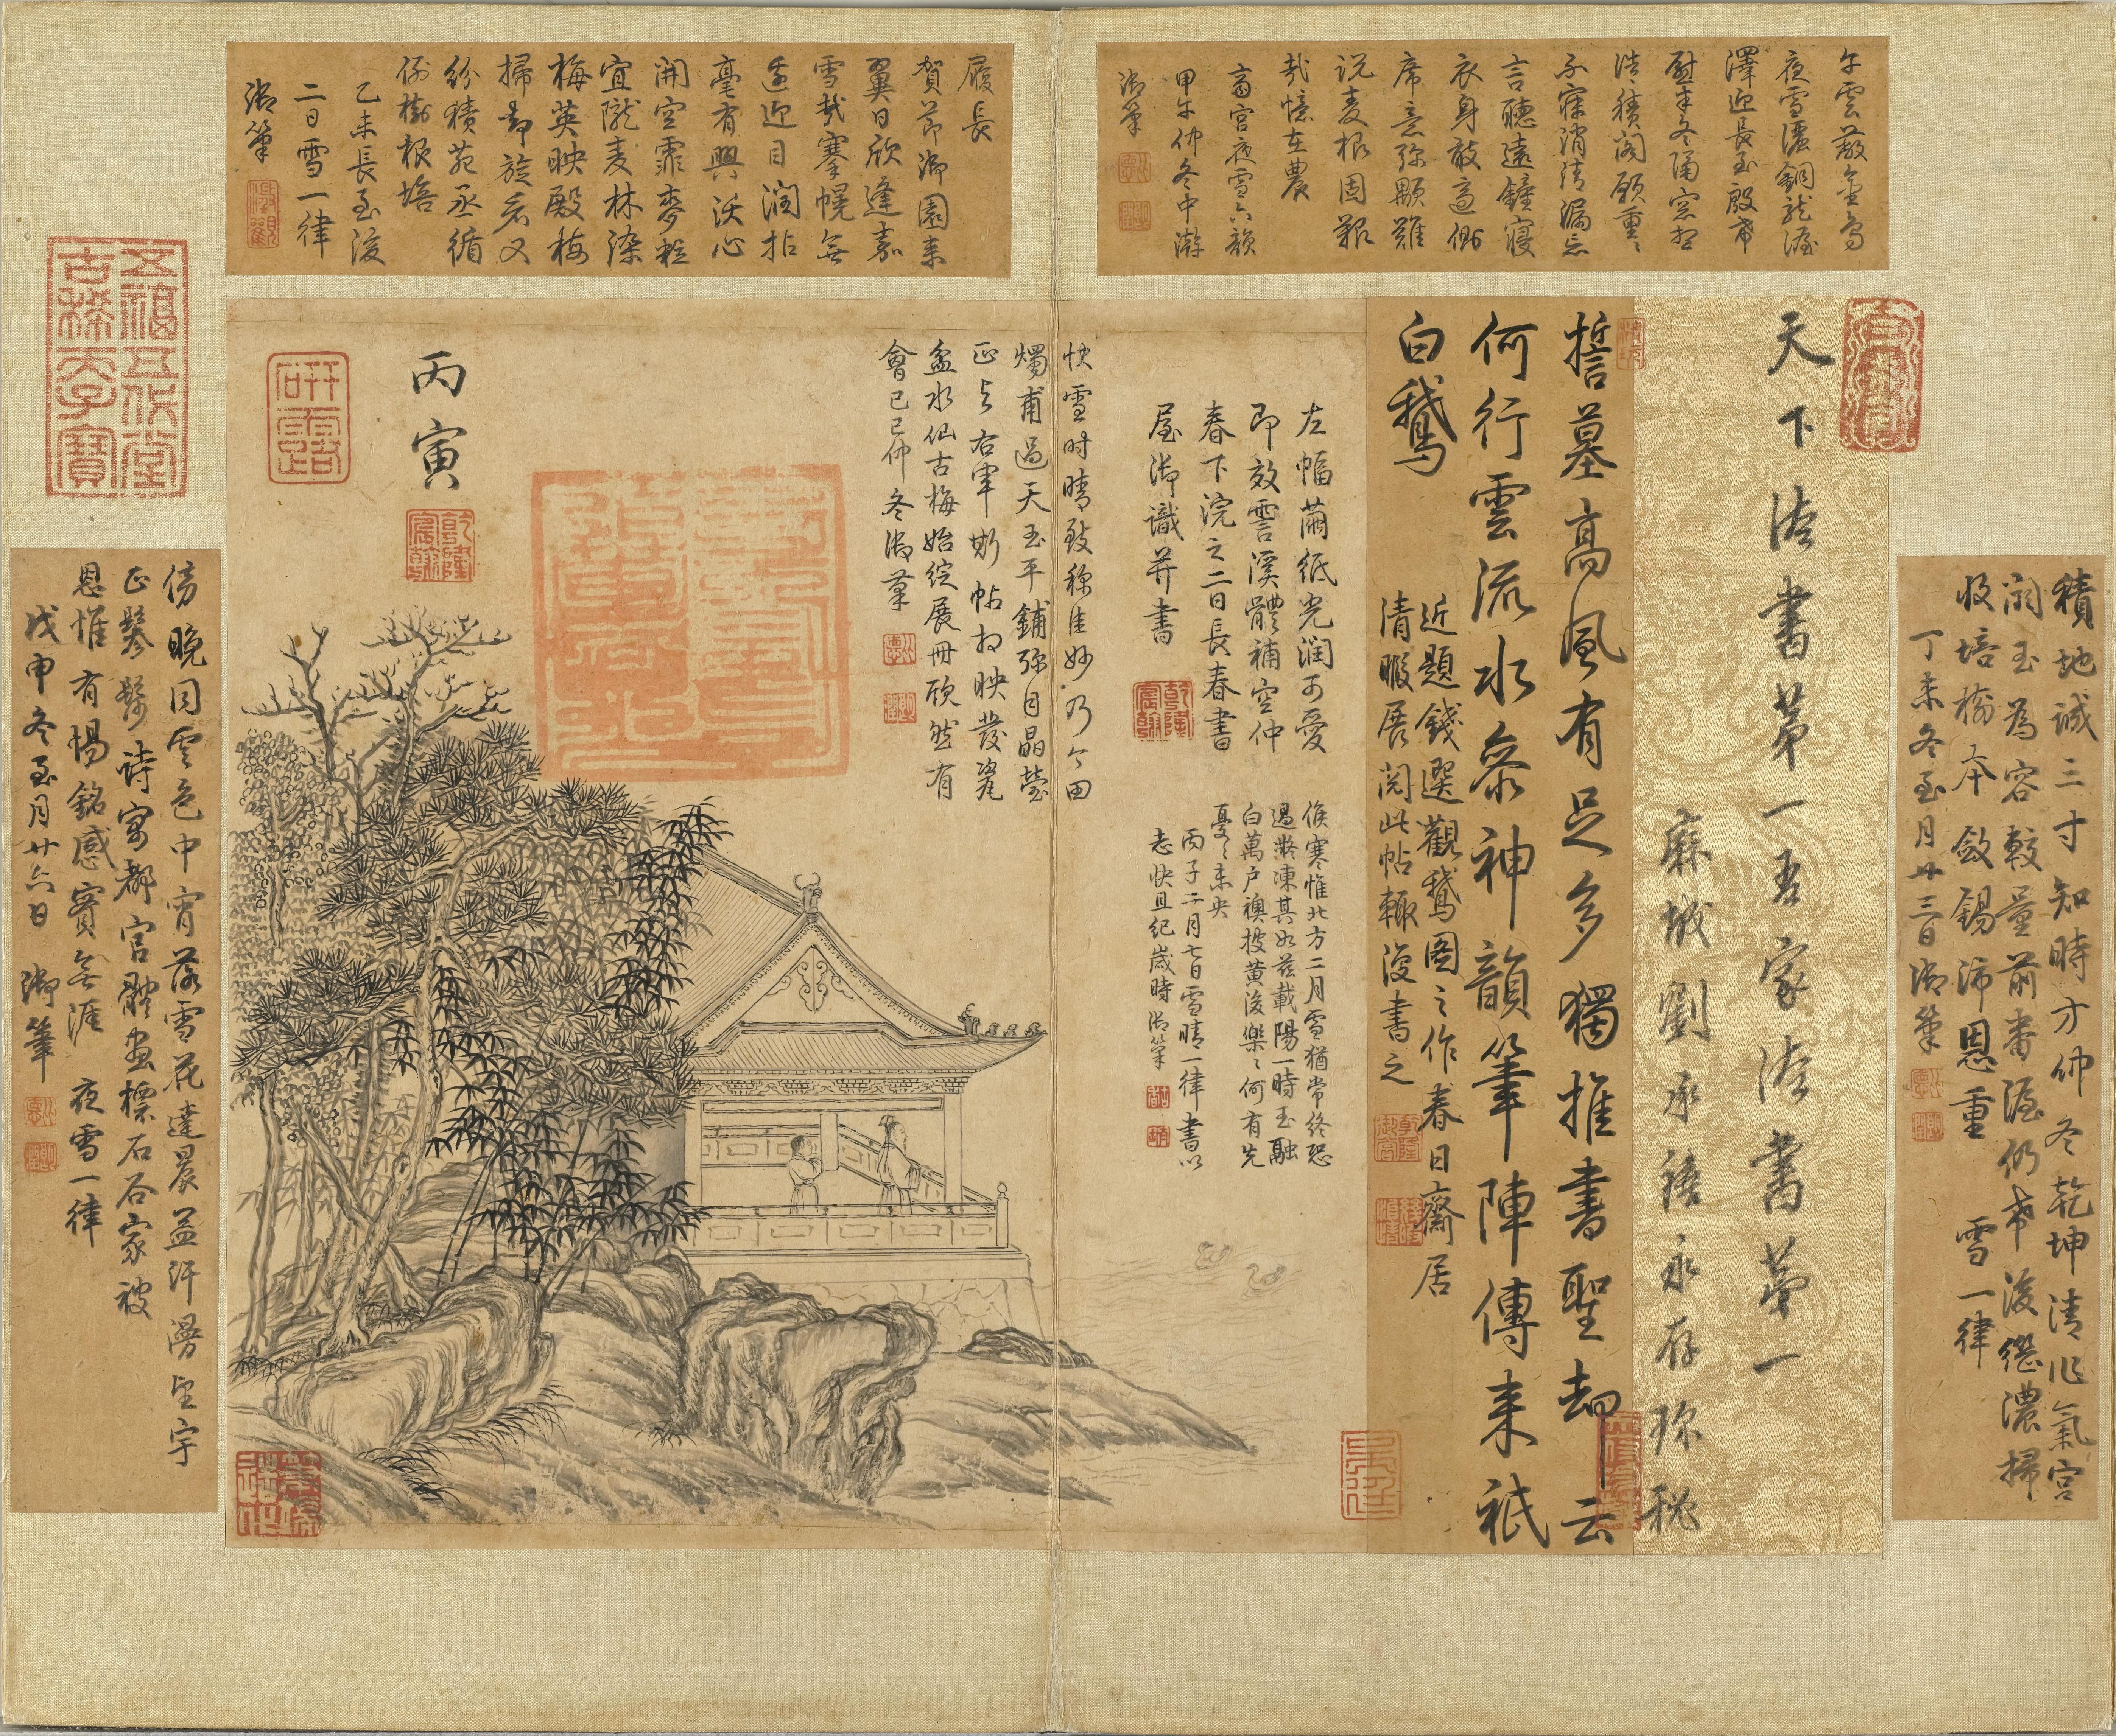 雲藂金烏
夜雪銅龍渥
澤迎長至殷
慰半冬隔窓
積閤願重〻
不寐消清漏忘
言聽遠鐘寢
衣身敢適側
席意弥顒雖
説麦根固艱
哉憶在農
齋宮夜雪六韻
甲午仲冬中澣
御筆
履長
賀節御園来
翼日欣逢嘉
雪哉搴幌無
邊迎目潤拈
毫有興沃心
開空霏麥粒
宜隴麦林染
梅英映殿梅
掃却旋看又
紛積苑丞循
例樹根培
乙未長至後
二日雪一律
御筆
積地誠三寸知時方仲冬乾坤清作氣宮
闕玉為容較量前番渥仍希後繼濃掃
收培樹本斂錫沛恩重 雪一律
丁未冬至月廿三日御筆
天下法書第一吾家法書第一
麻城劉承禧永存珎秘
誓墓高風有足多獨推書聖却云
何行雲流水參神韻筆陣傳来祇
白鵝
近題錢選觀鵝圖之作春日齋居
清暇展閲此帖輙復書之
左幅繭紙光潤可愛
即效雲溪體補空仲
春下浣之二日長春書
屋御識并書
乾隆宸翰
候寒惟北方二月雪猶常終恐
過嚴凍其如茲載陽一時玉融
白萬户襖披黄後樂〻何有先
憂〻未央
丙子二月七日雪晴一律書以
志快且紀歲時御筆
快雪時晴致稱佳妙乃今田
燭甫過天玉平鋪弥目晶瑩
正与右軍斯帖相映發瓷
盆水仙古梅始綻展冊欣然有
會己巳仲冬御筆
丙寅
乾隆宸翰
研露
五福五代堂
古稀天子寶
傍晚同雲色中宵落雪花達晨益汗漫望宇
正鬖髿詩寓都官體画標石谷家被
恩惟有惕銘感實無涯 夜雪一律
戊申冬至月廿六日 御筆